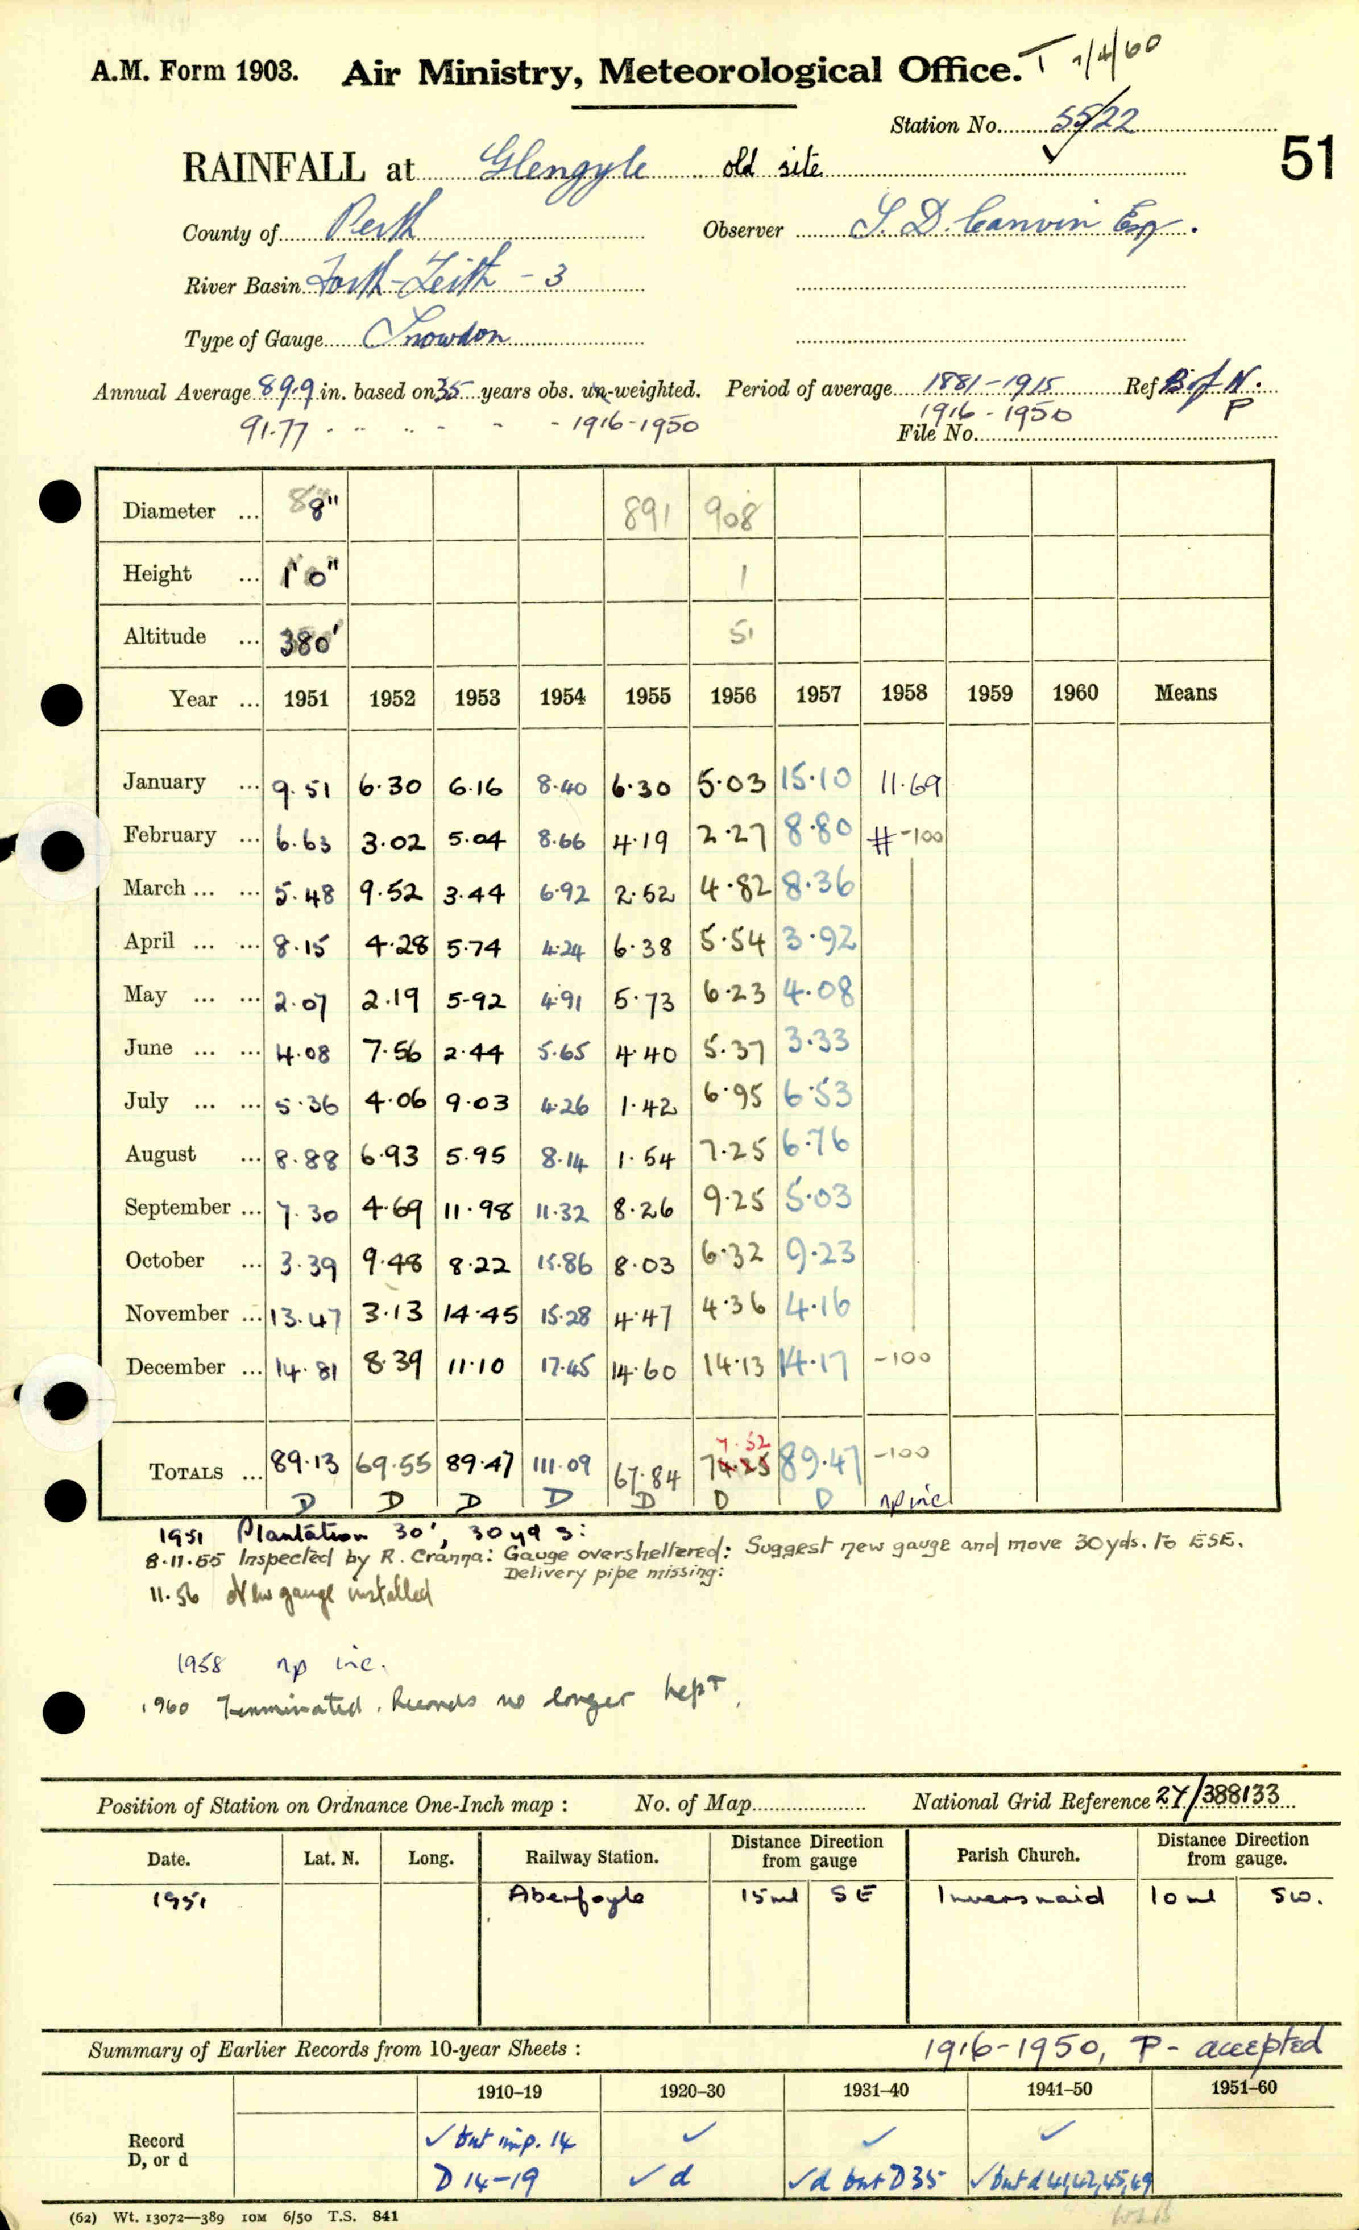 A.M. Form 1903. Air Ministry, Meteorological Office. T 1/4/60
Station No. 55/22
RAINFALL at Glengyle old site
51
County of Perth Observer S. D. Canvin Esq.
River Basin Forth-Teith - 3
Type of Gauge Snowdon
Annual Average 89.9 in. based on 35 years obs. un-weighted. Period of average 1881-1915 Ref B of N.
91.77 1916-1950 1916-1950 P
File No.
Diameter ... 8" 891 908
Height ... 1'0" 1
Altitude ... 380' 51
Year ... 1951 1952 1953 1954 1955 1956 1957 1958 1959 1960 Means
January ... 9.51 6.30 6.16 8.40 6.30 5.03 15.10 11.69
February ... 6.63 3.02 5.04 8.66 4.19 2.27 8.80 # -100
March ... ... 5.48 9.52 3.44 6.92 2.52 4.82 8.36
April ... ... 8.15 4.28 5.74 4.24 6.38 5.54 3.92
May ... ... 2.07 2.19 5.92 4.91 5.73 6.23 4.08
June ... ... 4.08 7.56 2.44 5.65 4.40 5.37 3.33
July ... ... 5.36 4.06 9.03 4.26 1.42 6.95 6.53
August ... 8.88 6.93 5.95 8.14 1.54 7.25 6.76
September ... 7.30 4.69 11.98 11.32 8.26 9.25 5.03
October ... 3.39 9.48 8.22 15.86 8.03 6.32 9.23
November ... 13.47 3.13 14.45 15.28 4.47 4.36 4.16
December ... 14.81 8.39 11.10 17.45 14.60 14.13 14.17 -100
7.52
TOTALS ... 89.13 69.55 89.47 111.09 67.84 74.25 89.47 -100
D D D D D D D np inc
1951 Plantation 30', 30 yds S:
8.11.55 Inspected by R. Cranna: Gauge oversheltered: Suggest new gauge and move 30 yds. to ESE.
Delivery pipe missing:
11.56 New gauge installed
1958 np inc.
1960 Terminated. Records no longer kept.
Position of Station on Ordnance One-Inch map : No. of Map National Grid Reference 27/388133
Date. Lat. N. Long. Railway Station. Distance Direction from gauge Parish Church. Distance Direction from gauge.
1951 Aberfoyle 15 ml SE Inversnaid 10 ml SW.
Summary of Earlier Records from 10-year Sheets : 1916-1950, P - accepted
1910–19 1920–30 1931–40 1941–50 1951–60
Record ✓ but imp. 14 ✓ ✓ ✓
D, or d D 14-19 ✓ d ✓ d but D 35 ✓ but d 41,42,45,49
(62) Wt. 13072—389 10M 6/50 T.S. 841